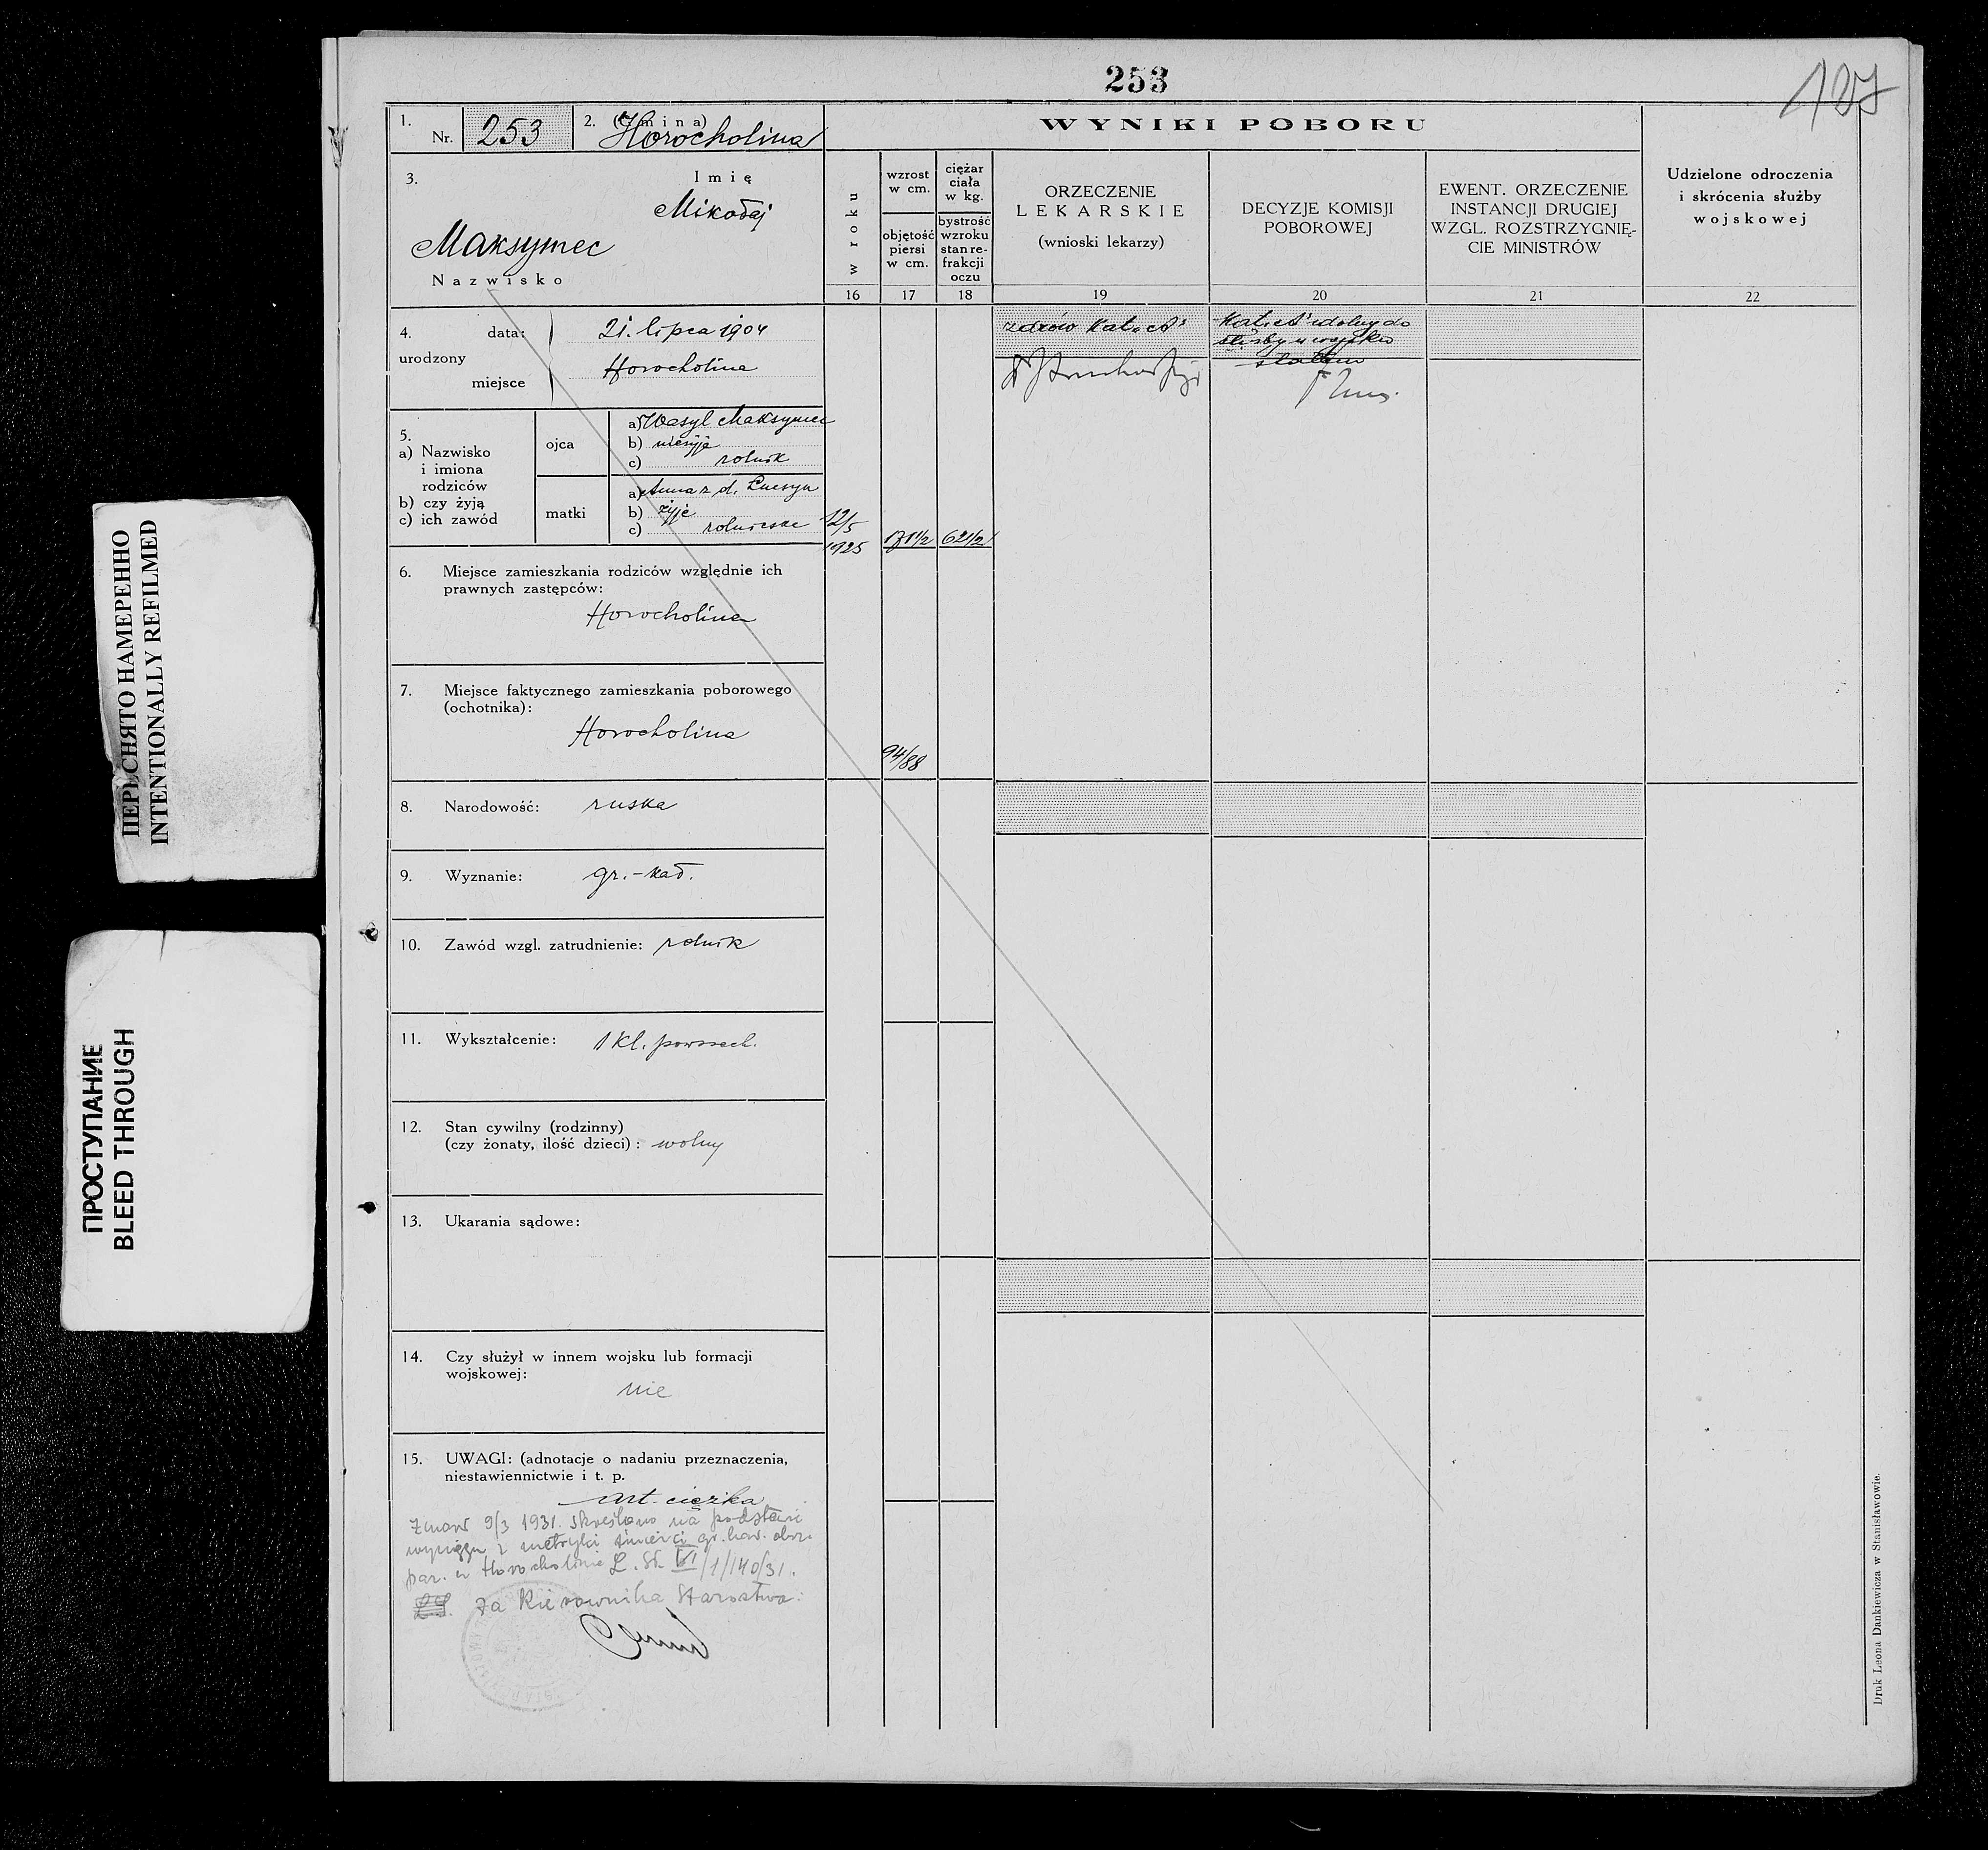 253
127
1.
Nr. 253
2. (Gmina)
Horocholina
WYNIKI POBORU
3.
Imię
Mikołaj
Maksymec
Nazwisko
w roku
wzrost
w cm.
objętość
piersi
w cm.
ciężar
ciała
w kg.
bystrość
wzroku
stan re-
frakcji
oczu
ORZECZENIE
LEKARSKIE
(wnioski lekarzy)
DECYZJE KOMISJI
POBOROWEJ
EWENT. ORZECZENIE
INSTANCJI DRUGIEJ
WZGL. ROZSTRZYGNIĘ-
CIE MINISTRÓW
Udzielone odroczenia
i skrócenia służby
wojskowej
16 17 18 19 20 21 22
4.
urodzony
data: 21. lipca 1904
miejsce Horocholina
zdrów Kat. „A"
Kat. „A" zdolny do
służby w wojsku
stałem
5.
a) Nazwisko
i imiona
rodziców
b) czy żyją
c) ich zawód
ojca
a) Wasyl Maksymec
b) nieżyje
c) rolnik
matki
a) Anna z d.
b) żyje
c) rolniczka
12/5
1925
171 1/2
62 1/2
6. Miejsce zamieszkania rodziców względnie ich
prawnych zastępców:
Horocholina
7. Miejsce faktycznego zamieszkania poborowego
(ochotnika):
Horocholina
94/88
8. Narodowość: ruska
9. Wyznanie: gr.-kat.
10. Zawód wzgl. zatrudnienie: rolnik
11. Wykształcenie: 1 kl. powszech.
12. Stan cywilny (rodzinny)
(czy żonaty, ilość dzieci): wolny
13. Ukarania sądowe:
14. Czy służył w innem wojsku lub formacji
wojskowej:
nie
15. UWAGI: (adnotacje o nadaniu przeznaczenia,
niestawiennictwie i t. p.
art. ciężka
Zmarł 9/3 1931. skreślono na podstawie
wyciągu z metryki śmierci gr. kat. obrz.
par. w Horocholinie L. St. VI/1/140/31.
za Kierownika Starostwa:
Druk Leona Dankiewicza w Stanisławowie.
ПЕРЕСНЯТО НАМЕРЕННО
INTENTIONALLY REFILMED
ПРОСТУПАНИЕ
BLEED THROUGH